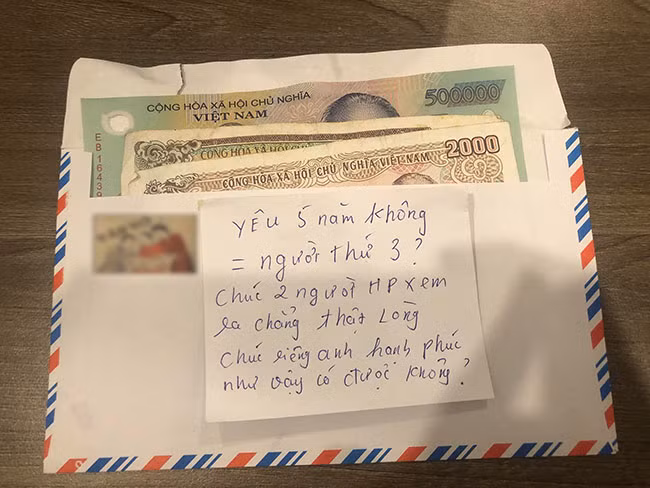 CỘNG HÒA XÃ HỘI CHỦ NGHĨA
VIỆT NAM
500000
EB 16439
CỘNG HÒA XÃ HỘI CHỦ
CỘNG HÒA XÃ HỘI CHỦ NGHĨA VIỆT NAM
2000
YÊU 5 năm không
= người thứ 3?
Chúc 2 người HP xem
ra chẳng thật Lòng
Chúc riêng anh hạnh phúc
như vậy có được không?